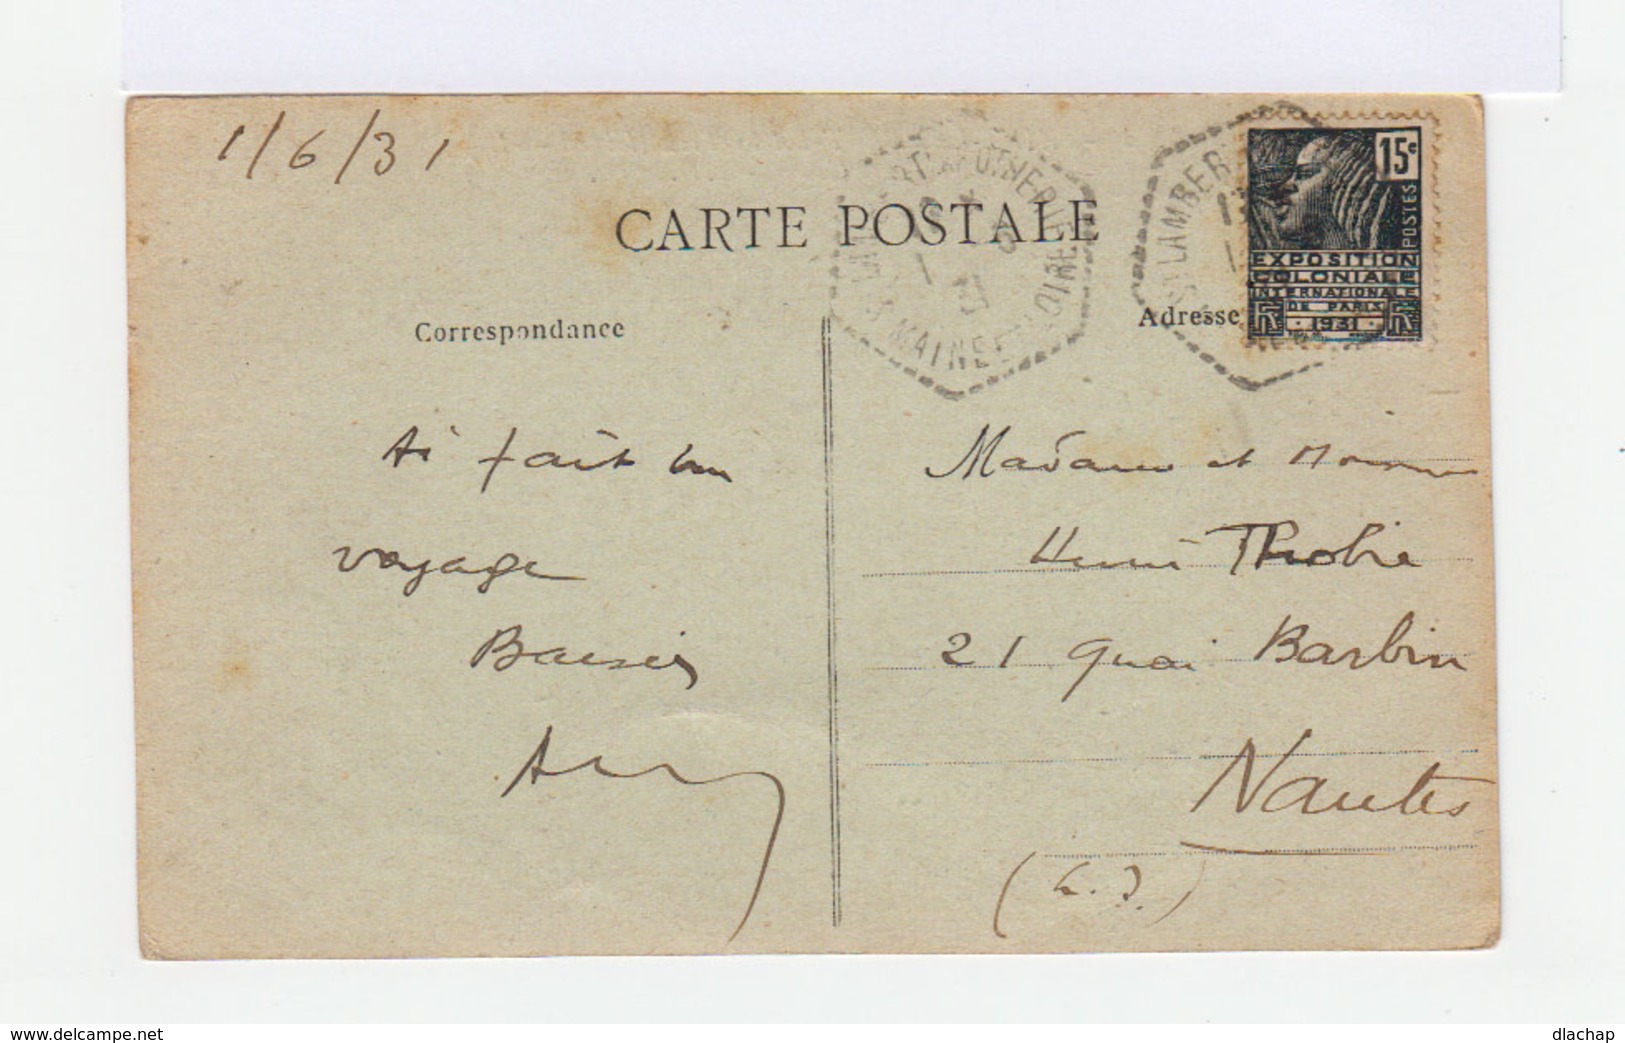 1/6/31
CARTE POSTALE
Correspondance
Adresse
15c
POSTES
EXPOSITION
COLONIALE
INTERNATIONALE
DE PARIS
1931
ST LAMBERT LA POTHERIE
MAINE ET LOIRE
ST LAMBER
Ai fait bon
voyage
Baisers
Madame et Monsieur
Henri Thobie
21 Quai Barbin
Nantes
(L. I.)
www.delcampe.net
dlachap